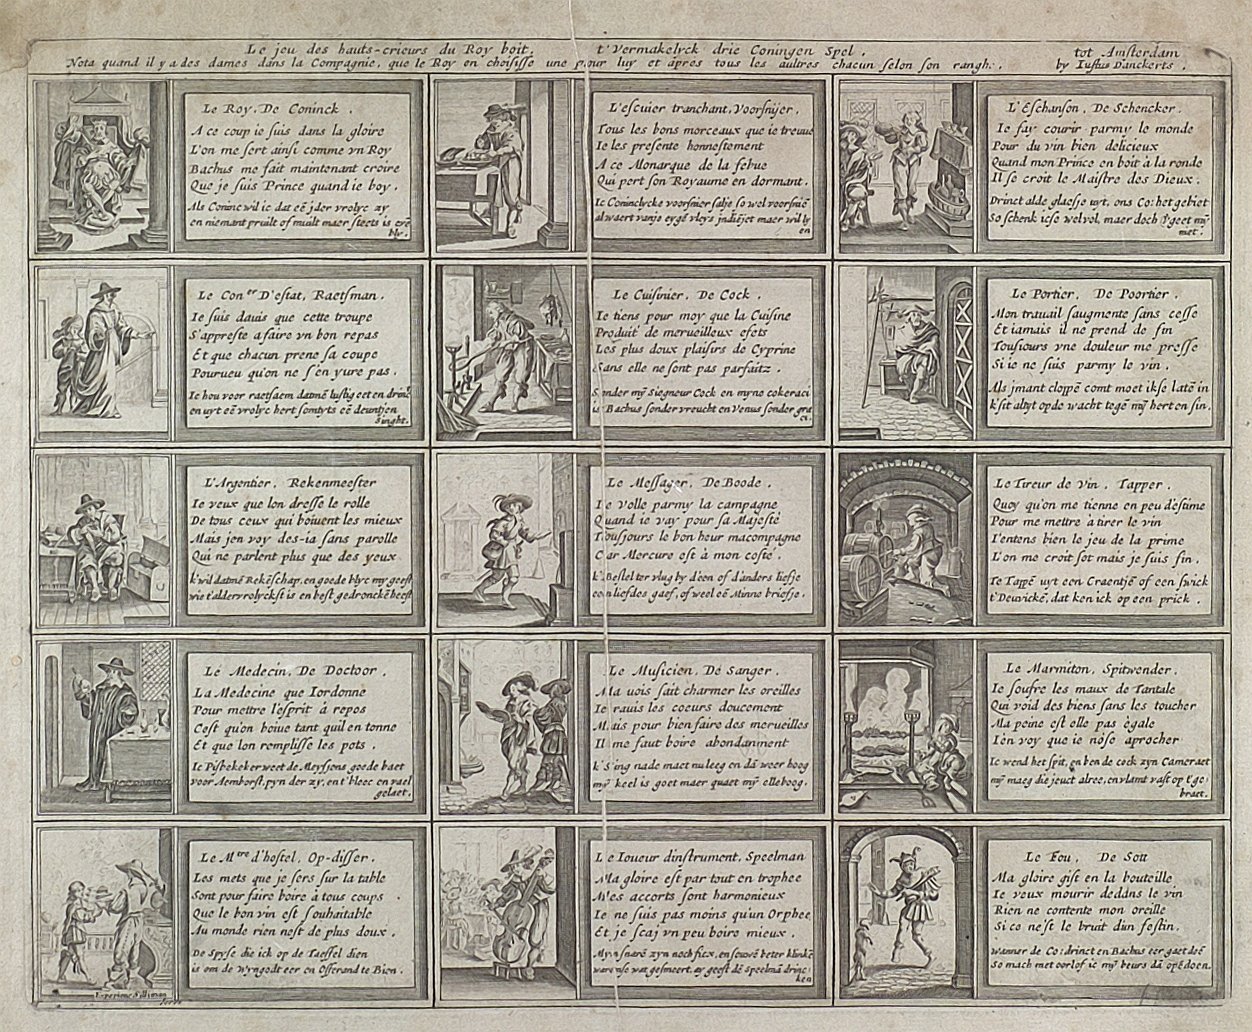 Le jeu des hauts-crieurs du Roy boit. t'Vermakelyck drie Coningen Spel. tot Amsterdam
Nota quand il y a des dames dans la Compagnie, que le Roy en choisisse une pour luy et apres tous les aultres chacun selon son rangh. by Iustus Danckerts.
Le Roy, De Coninck.
A ce coup ie suis dans la gloire
L'on me sert ainsi comme vn Roy
Bachus me fait maintenant croire
Que je suis Prince quand ie boy.
Als Coninc wil ic dat eē jder vrolyc zy
en niemant pruilt of muilt maer steets is
bly.
L'escuier tranchant, Voorsnijer.
Tous les bons morceaux que ie treuue
Ie les presente honnestement
A ce Monarque de la febue
Qui pert son Royaume en dormant.
Ic Coninclycke voorsnier salje so wel voorsniē
al waert vanje eygē vleys jndiējet maer wil
en
L'Eschanson, De Schencker.
Ie fay courir parmy le monde
Pour du vin bien delicieux
Quand mon Prince en boit à la ronde
Il se croit le Maistre des Dieux.
Drinct alde glaesje uyt, ons Co: het gebiet
So schenk icse wel vol, maer doch geet mȳ
met.
Le Coner D'estat, Raetsman.
Ie suis dauis que cette troupe
S'appreste a faire vn bon repas
Et que chacun prene sa coupe
Pourueu qu'on ne s'en yure pas.
Ie hou voor raetsaem datmē lustig eet en
en uyt eē vrolyc hert somtyts eē deuntjen
Singht.
Le Cuisinier, De Cock.
Ie tiens pour moy que la Cuisine
Produit de merueilleux efets
Les plus doux plaisirs de Cyprine
Sans elle ne sont pas parfaitz.
Sonder mȳ Siegneur Cock en myne cokeraci
is Bachus sonder vreucht en Venus sonder gra
ci.
Le Portier, De Poortier.
Mon trauail s'augmente sans cesse
Et iamais il ne prend de fin
Tousiours vne douleur me presse
Si ie ne suis parmy le vin.
Als jmant cloppē comt moet ikse latē in
k'sit altyt op de wacht tegē mȳ hert en sin.
L'Argentier, Rekenmeester
Ie veux que lon dresse le rolle
De tous ceux qui boiuent les mieux
Mais jen voy des-ia sans parolle
Qui ne parlent plus que des yeux.
k'wil datmē Rekēschap, en goede blyc my geeft
wie t'aldervrolyckst is en best gedronckē heeft
Le Messager, De Boode.
Ie volle parmy la campagne
Quand ie vay pour sa Majesté
Tousjours le bon heur macompagne
Car Mercure est à mon costé.
k'Bestel ter vlug by d'een of d'anders liefje
een liefdes gaef, of weel eē Minne briefje.
Le Tireur de vin, Tapper.
Quoy qu'on me tienne en peu d'estime
Pour me mettre à tirer le vin
I'entens bien le jeu de la prime
L'on me croit sot mais je suis fin.
Ie Tapē uyt een Craentjē of een swick
t'Deuvickē, dat ken ick op een prick.
Le Medecin, De Doctoor.
La Medecine que Iordonne
Pour mettre l'esprit à repos
C'est qu'on boiue tant quil en tonne
Et que lon remplisse les pots.
Ic Pisbekeker weet de Meysens goede baet
voor Aemborst, pyn der zy, en t'bleec en vael
gelaet.
Le Musicien, De Sanger.
Ma uois fait charmer les oreilles
Ie rauis les coeurs doucement
Mais pour bien faire des merueilles
Il me faut boire abondanment
k'Sing nade maet nu leeg en dā weer hoog
mȳ keel is goet maer quaet mȳ elleboog.
Le Marmiton, Spitwender.
Ie soufre les maux de Tantale
Qui void des biens sans les toucher
Ma peine est elle pas ègale
I'en voy que ie nóse aprocher
Ic wend het spit, en ben de cock zyn Cameraet
mȳ maeg die jeuct alree, en vlamt vast op t'ge:
braet.
Le Mtre d'hostel, Op-disser.
Les mets que je sers sur la table
Sont pour faire boire à tous coups.
Que le bon vin est souhaitable
Au monde rien nest de plus doux.
De Spyse die ick op de Taeffel dien
is om de wyngodt eer en Offerand te Bien.
Le Ioueur dinstrument, Speelman
Ma gloire est par tout en trophee
Mes accorts sont harmonieux
Ie ne suis pas moins qu'un Orphee
Et je scaj vn peu boire mieux.
Myn snarē zyn noch ficx, en souwē beter klinkē
warense wat gesmeert, ay geeft dē speelmā drinc:
ken
Le Fou, De Sott
Ma gloire gist en la bouteille
Ie veux mourir dedāns le vin
Rien ne contente mon oreille
Si ce nest le bruit dun festin.
Wanneer de Co: drinct en Bachus eer gaet deē
So mach met oorlof ic mȳ beurs dā opē doen.